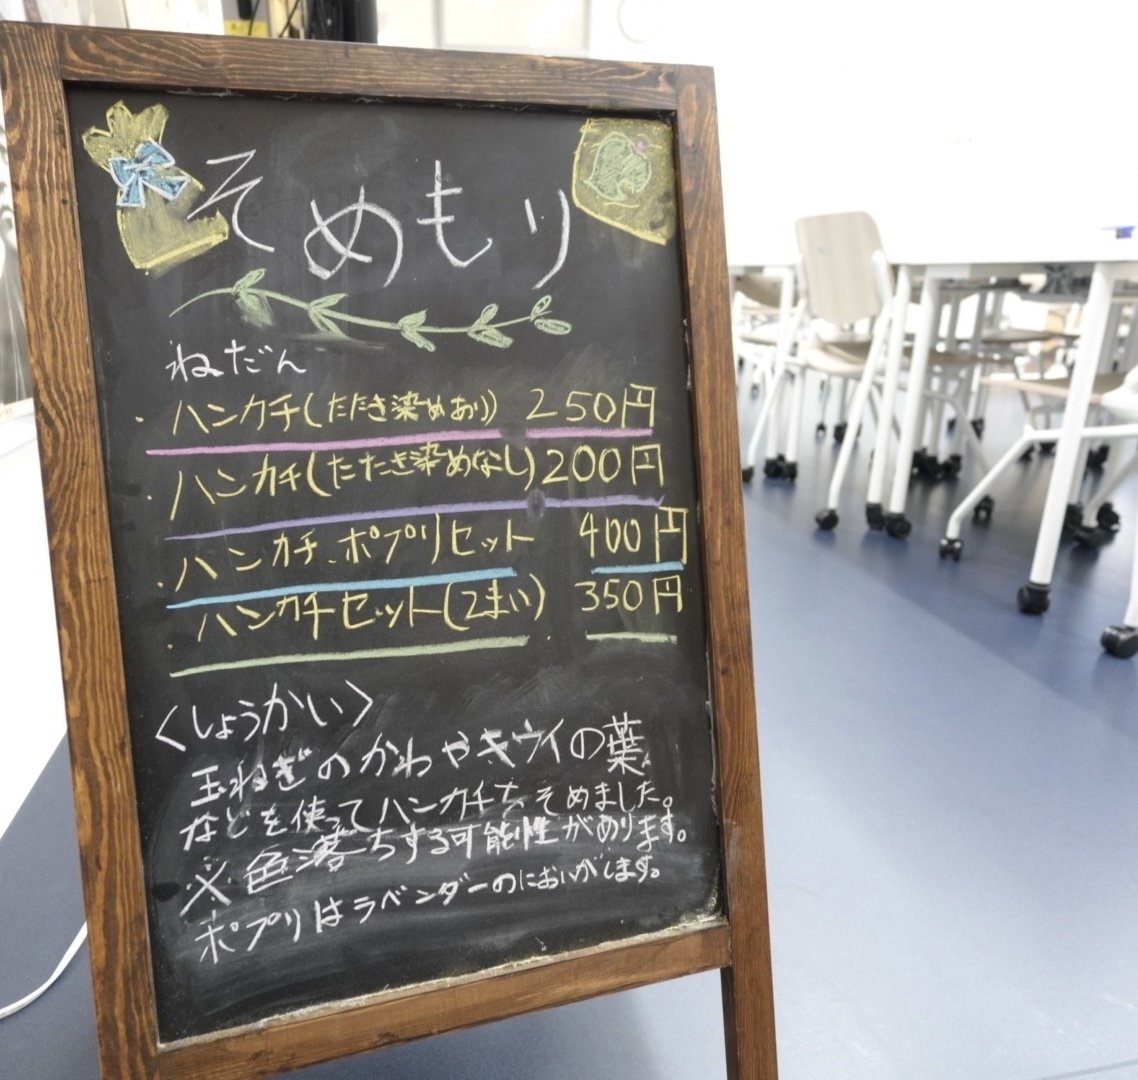 そめもり
ねだん
・ハンカチ(たたき染めあり) 250円
・ハンカチ(たたき染めなし) 200円
・ハンカチ、ポプリセット 400円
・ハンカチセット(2まい) 350円
〈しょうかい〉
玉ねぎのかわやキウイの葉
などを使ってハンカチをそめました。
※色落ちする可能性があります。
ポプリはラベンダーのにおいがします。